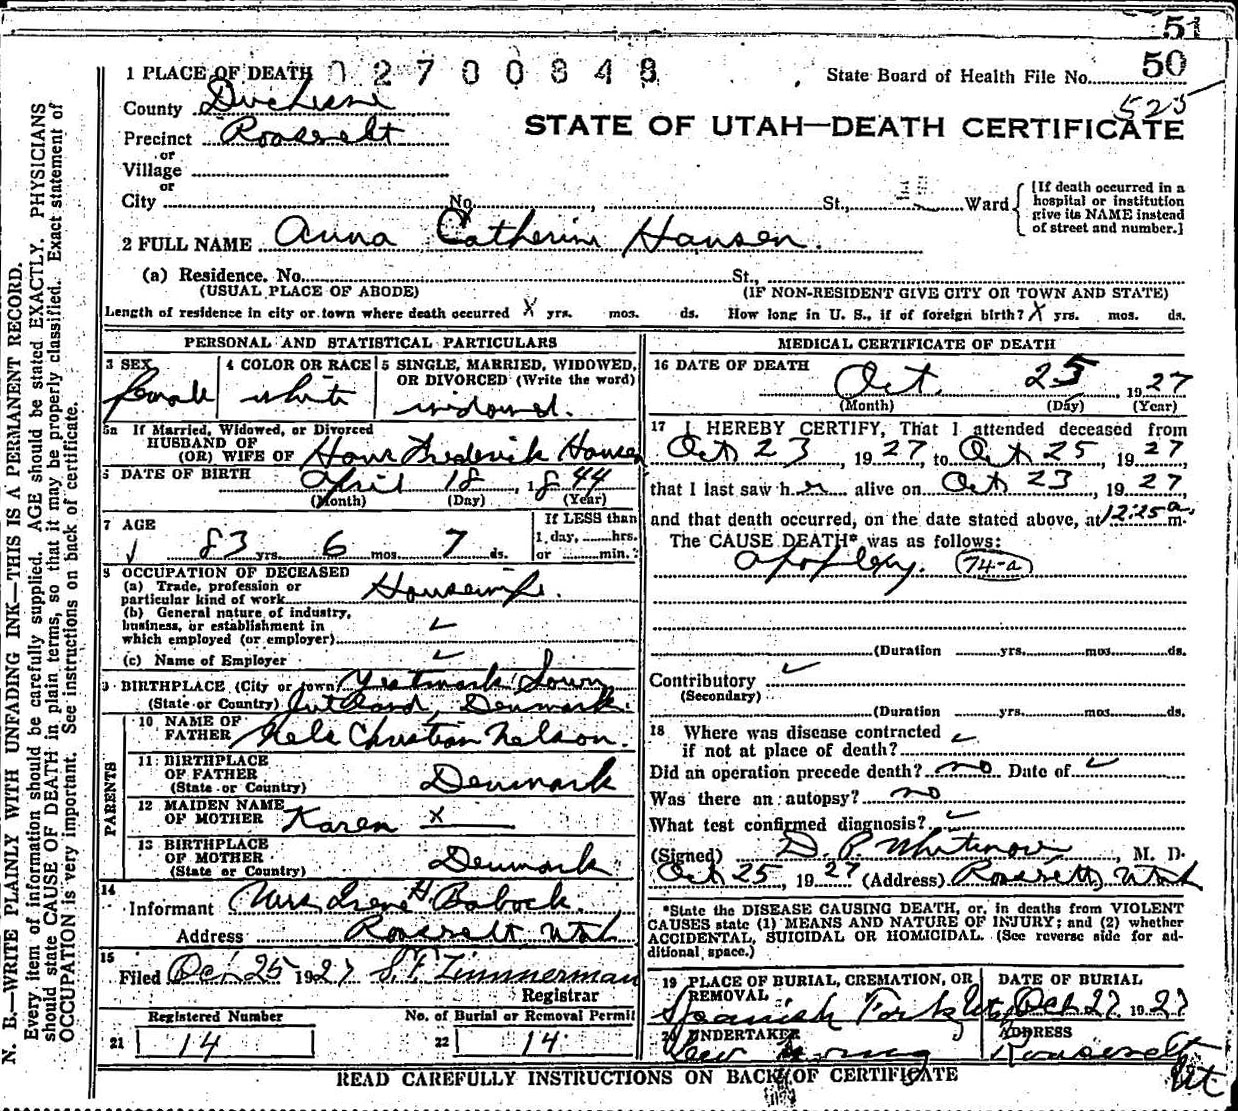 51
1 PLACE OF DEATH 02700848 State Board of Health File No. 50
County Duchesne 525
Precinct Roosevelt STATE OF UTAH—DEATH CERTIFICATE
or
Village
or
City No. , St., Ward
[If death occurred in a hospital or institution give its NAME instead of street and number.]
2 FULL NAME Anna Catherine Hansen.
(a) Residence. No. St.,
(USUAL PLACE OF ABODE) (IF NON-RESIDENT GIVE CITY OR TOWN AND STATE)
Length of residence in city or town where death occurred X yrs. mos. ds. How long in U. S., if of foreign birth? X yrs. mos. ds.
PERSONAL AND STATISTICAL PARTICULARS
3 SEX
female
4 COLOR OR RACE
white
5 SINGLE, MARRIED, WIDOWED, OR DIVORCED (Write the word)
widowed.
5a If Married, Widowed, or Divorced
HUSBAND OF
(OR) WIFE OF Hans Frederik Hansen
6 DATE OF BIRTH April 18, 1844
(Month) (Day) (Year)
7 AGE
83 yrs. 6 mos. 7 ds.
If LESS than
1 day, hrs.
or min.?
8 OCCUPATION OF DECEASED
(a) Trade, profession or
particular kind of work Housewife.
(b) General nature of industry,
business, or establishment in
which employed (or employer)
(c) Name of Employer
9 BIRTHPLACE (City or town)
(State or Country) Jutland, Denmark.
PARENTS
10 NAME OF
FATHER Nels Christian Nelson.
11 BIRTHPLACE
OF FATHER
(State or Country) Denmark
12 MAIDEN NAME
OF MOTHER Karen X
13 BIRTHPLACE
OF MOTHER
(State or Country) Denmark
14
Informant Mrs Irene H. Babcock.
Address Roosevelt, Utah
15
Filed Oct 25 1927 S. F. Zimmerman
Registrar
Registered Number No. of Burial or Removal Permit
21 14 22 14
MEDICAL CERTIFICATE OF DEATH
16 DATE OF DEATH
Oct. 25, 1927
(Month) (Day) (Year)
17 I HEREBY CERTIFY, That I attended deceased from
Oct 23, 1927, to Oct 25, 1927,
that I last saw her alive on Oct 23, 1927,
and that death occurred, on the date stated above, at 12:25 a. m.
The CAUSE DEATH* was as follows:
apoplexy. 74-a
(Duration yrs. mos. ds.
Contributory
(Secondary)
(Duration yrs. mos. ds.
18 Where was disease contracted
if not at place of death?
Did an operation precede death? no Date of
Was there an autopsy? no
What test confirmed diagnosis?
(Signed) D. P. Whitmore, M. D.
Oct 25, 1927 (Address) Roosevelt, Utah
*State the DISEASE CAUSING DEATH, or, in deaths from VIOLENT
CAUSES state (1) MEANS AND NATURE OF INJURY; and (2) whether
ACCIDENTAL, SUICIDAL OR HOMICIDAL. (See reverse side for ad-
ditional space.)
19 PLACE OF BURIAL, CREMATION, OR REMOVAL
Spanish Fork Utah
DATE OF BURIAL
Oct 27, 1927
20 UNDERTAKER
ADDRESS
Roosevelt
Ut
READ CAREFULLY INSTRUCTIONS ON BACK OF CERTIFICATE
N. B.—WRITE PLAINLY WITH UNFADING INK—THIS IS A PERMANENT RECORD.
Every item of information should be carefully supplied. AGE should be stated EXACTLY. PHYSICIANS
should state CAUSE OF DEATH in plain terms, so that it may be properly classified. Exact statement of
OCCUPATION is very important. See instructions on back of certificate.